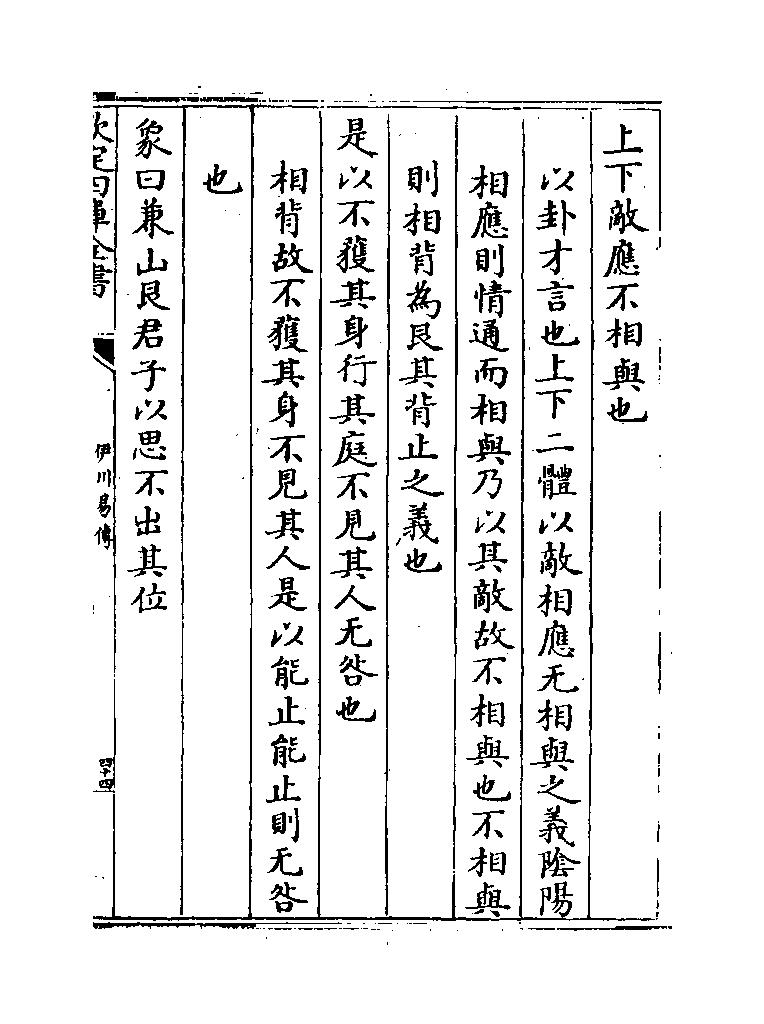 上下敵應不相與也
以卦才言也上下二體以敵相應无相與之義陰陽
相應則情通而相與乃以其敵故不相與也不相與
則相背為艮其背止之義也
是以不獲其身行其庭不見其人无咎也
相背故不獲其身不見其人是以能止能止則无咎
也
象曰兼山艮君子以思不出其位
欽定四庫全書
伊川易傳
四十四